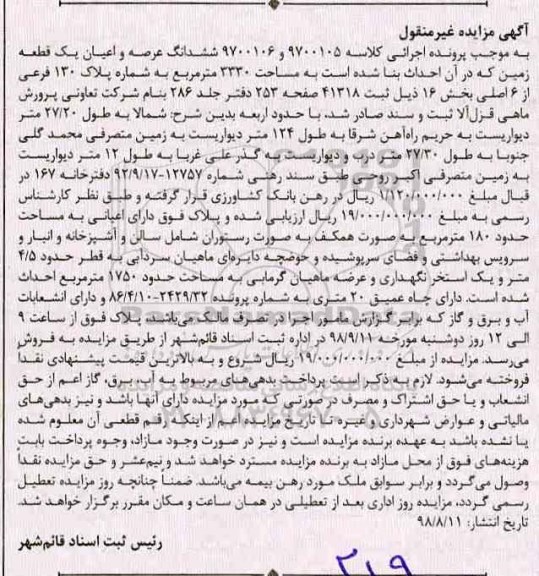 آگهی مزایده غیرمنقول
به موجب پرونده اجرائی کلاسه ۹۷۰۰۱۰۵ و ۹۷۰۰۱۰۶ ششدانگ عرصه و اعیان یک قطعه
زمین که در آن احداث بنا شده است به مساحت ۳۳۳۰ مترمربع به شماره پلاک ۱۳۰ فرعی
از ۶ اصلی بخش ۱۶ ذیل ثبت ۴۱۳۱۸ صفحه ۲۵۳ دفتر جلد ۲۸۶ بنام شرکت تعاونی پرورش
ماهی قزل‌آلا ثبت و سند صادر شد، با حدود اربعه بدین شرح: شمالا به طول ۲۷/۲۰ متر
دیواریست به حریم راه‌آهن شرقا به طول ۱۲۴ متر دیواریست به زمین متصرفی محمد گلی
جنوبا به طول ۲۷/۳۰ متر درب و دیواریست به گذر علی غربا به طول ۱۲ متر دیواریست
به زمین متصرفی اکبر روحی طبق سند رهنی شماره ۱۲۷۵۷-۹۲/۹/۱۷ دفترخانه ۱۶۷ در
قبال مبلغ ۱/۱۲۰/۰۰۰/۰۰۰ ریال در رهن بانک کشاورزی قرار گرفته و طبق نظر کارشناس
رسمی به مبلغ ۱۹/۰۰۰/۰۰۰/۰۰۰ ریال ارزیابی شده و پلاک فوق دارای اعیانی به مساحت
حدود ۱۸۰ مترمربع به صورت همکف به صورت رستوران شامل سالن و آشپزخانه و انبار و
سرویس بهداشتی و فضای سرپوشیده و حوضچه دایره‌ای ماهیان سردآبی به قطر حدود ۴/۵
متر و یک استخر نگهداری و عرضه ماهیان گرمابی به مساحت حدود ۱۷۵۰ مترمربع احداث
شده است. دارای چاه عمیق ۲۰ متری به شماره پرونده ۲۴۲۹/۳۲-۸۶/۴/۱۰ و دارای انشعابات
آب و برق و گاز که برابر گزارش مامور اجرا در تصرف مالک می‌باشد. پلاک فوق از ساعت ۹
الی ۱۲ روز دوشنبه مورخه ۹۸/۹/۱۱ در اداره ثبت اسناد قائم‌شهر از طریق مزایده به فروش
می‌رسد. مزایده از مبلغ ۱۹/۰۰۰/۰۰۰/۰۰۰ ریال شروع و به بالاترین قیمت پیشنهادی نقداً
فروخته می‌شود. لازم بذکر است پرداخت بدهی‌های مربوط به آب، برق، گاز اعم از حق
انشعاب و یا حق اشتراک و مصرف در صورتی که مورد مزایده دارای آنها باشد و نیز بدهی‌های
مالیاتی و عوارض شهرداری و غیره تا تاریخ مزایده اعم از اینکه رقم قطعی آن معلوم شده
یا نشده باشد به عهده برنده مزایده است و نیز در صورت وجود مازاد، وجوه پرداخت بابت
هزینه‌های فوق از محل مازاد به برنده مزایده مسترد خواهد شد و نیم‌عشر و حق مزایده نقداً
وصول می‌گردد و برابر سوابق ملک مورد رهن بیمه می‌باشد. ضمناً چنانچه روز مزایده تعطیل
رسمی گردد، مزایده روز اداری بعد از تعطیلی در همان ساعت و مکان مقرر برگزار خواهد شد.
تاریخ انتشار: ۹۸/۸/۱۱
رئیس ثبت اسناد قائم‌شهر
۲۱۹